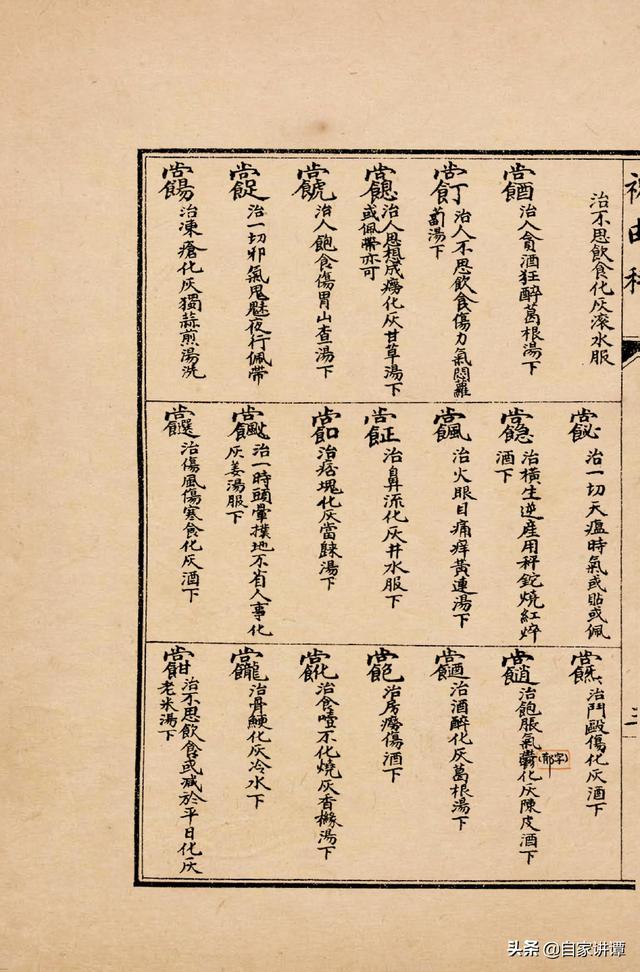 祝由科
治不思飲食化灰滾水服
治人貪酒狂醉葛根湯下
治人不思飲食傷力氣悶蘿
蔔湯下
治人思想成癆化灰甘草湯下
或佩帶亦可
治人飽食傷胃山查湯下
治一切邪氣鬼魅夜行佩帶
治凍瘡化灰獨蒜煎湯洗
治一切天瘟時氣或貼或佩
治橫生逆産用秤錠燒紅焠
酒下
治火眼目痛痒黃連湯下
治鼻流化灰井水服下
治痞塊化灰當歸湯下
治一時頭暈撲地不省人事化
灰姜湯服下
治傷風傷寒食化灰酒下
治鬥毆傷化灰酒下
治飽脹氣化灰陳皮酒下
(鬱字)
治酒醉化灰葛根湯下
治房癆傷酒下
治食噎不化燒灰香橼湯下
治骨鯁化灰冷水下
治不思飲食或减於平日化灰
老米湯下
头条 @自家讲谭